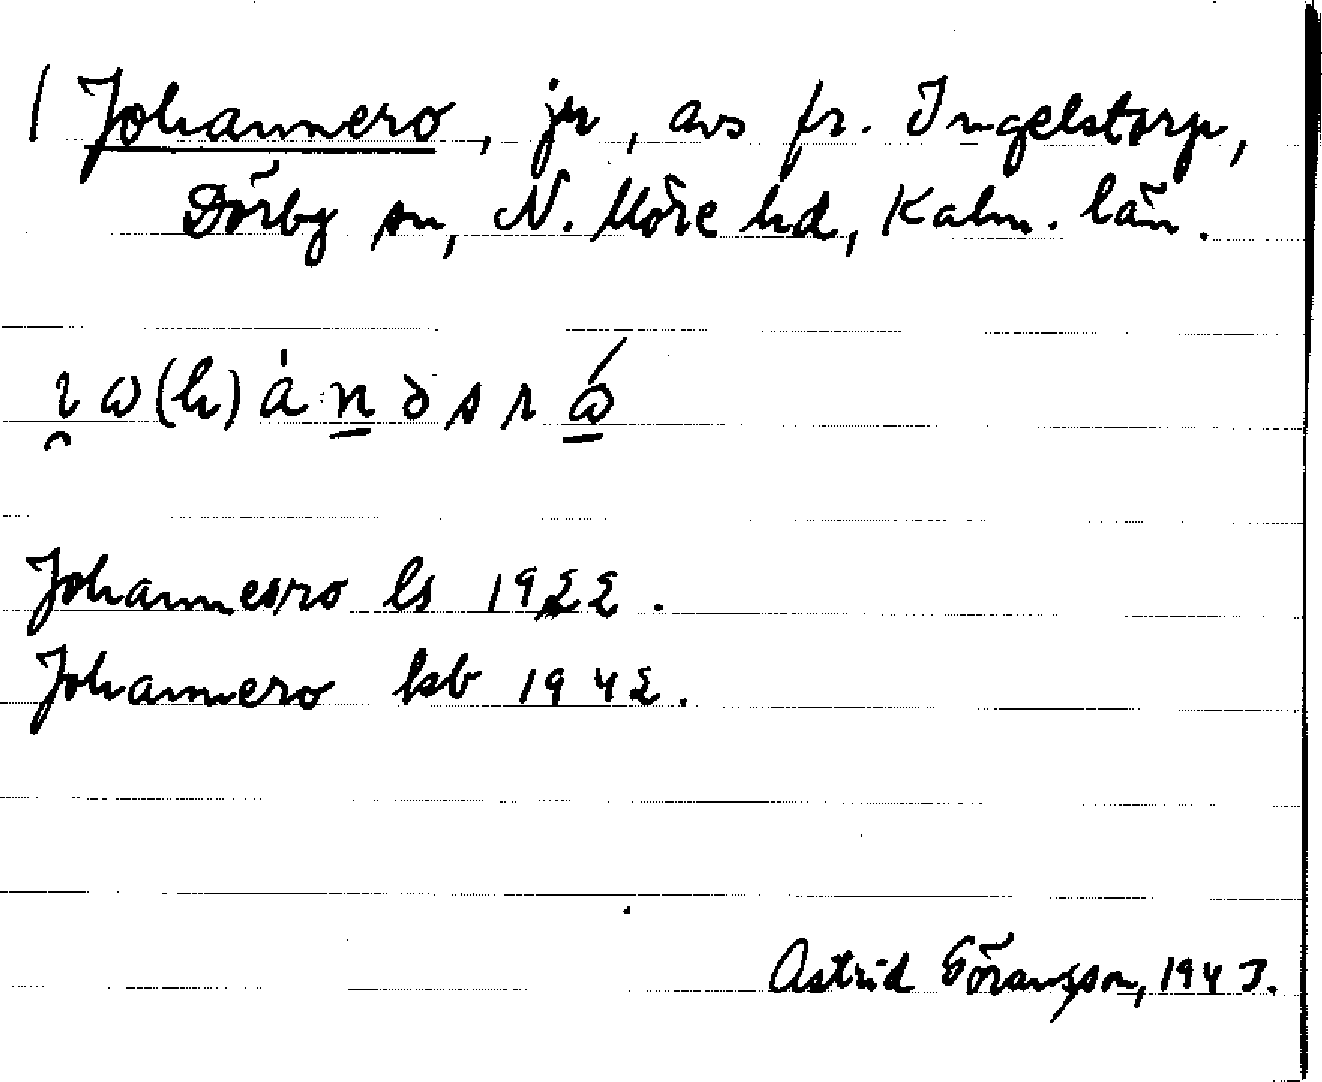 / Johannero, jr, avs fr. Ingelstorp,
Dörby sn, N. Möre hd, Kalm. län.
ɩ ω(h) á n ə s r ώ
Johannesro ls 1922.
Johannero kb 1942.
Astrid Göransson, 1943.